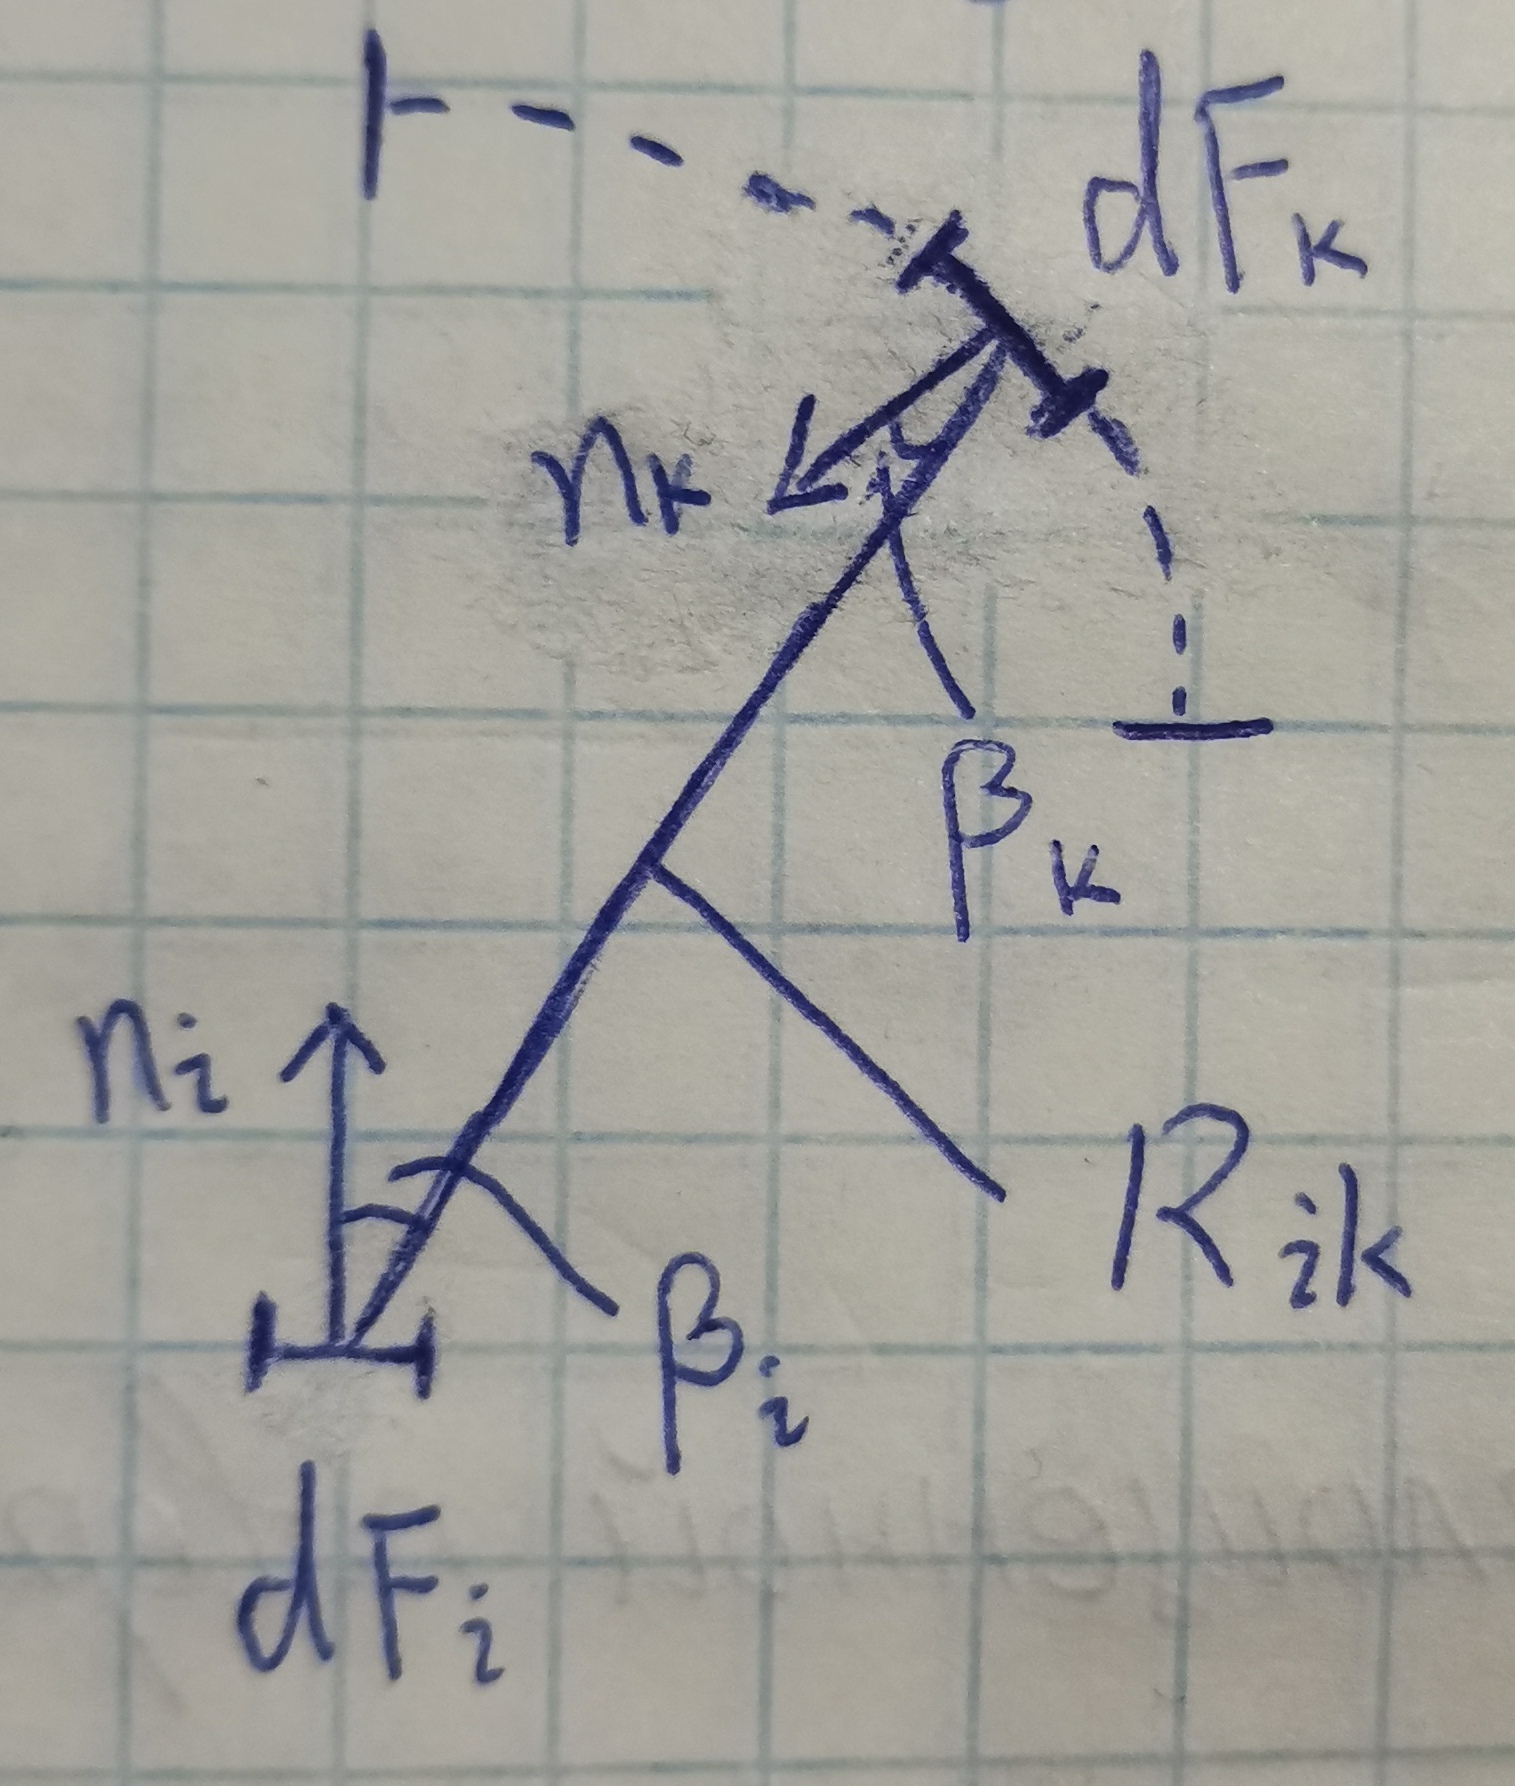 dFₖ
nₖ
βₖ
nᵢ
Rᵢₖ
βᵢ
dFᵢ